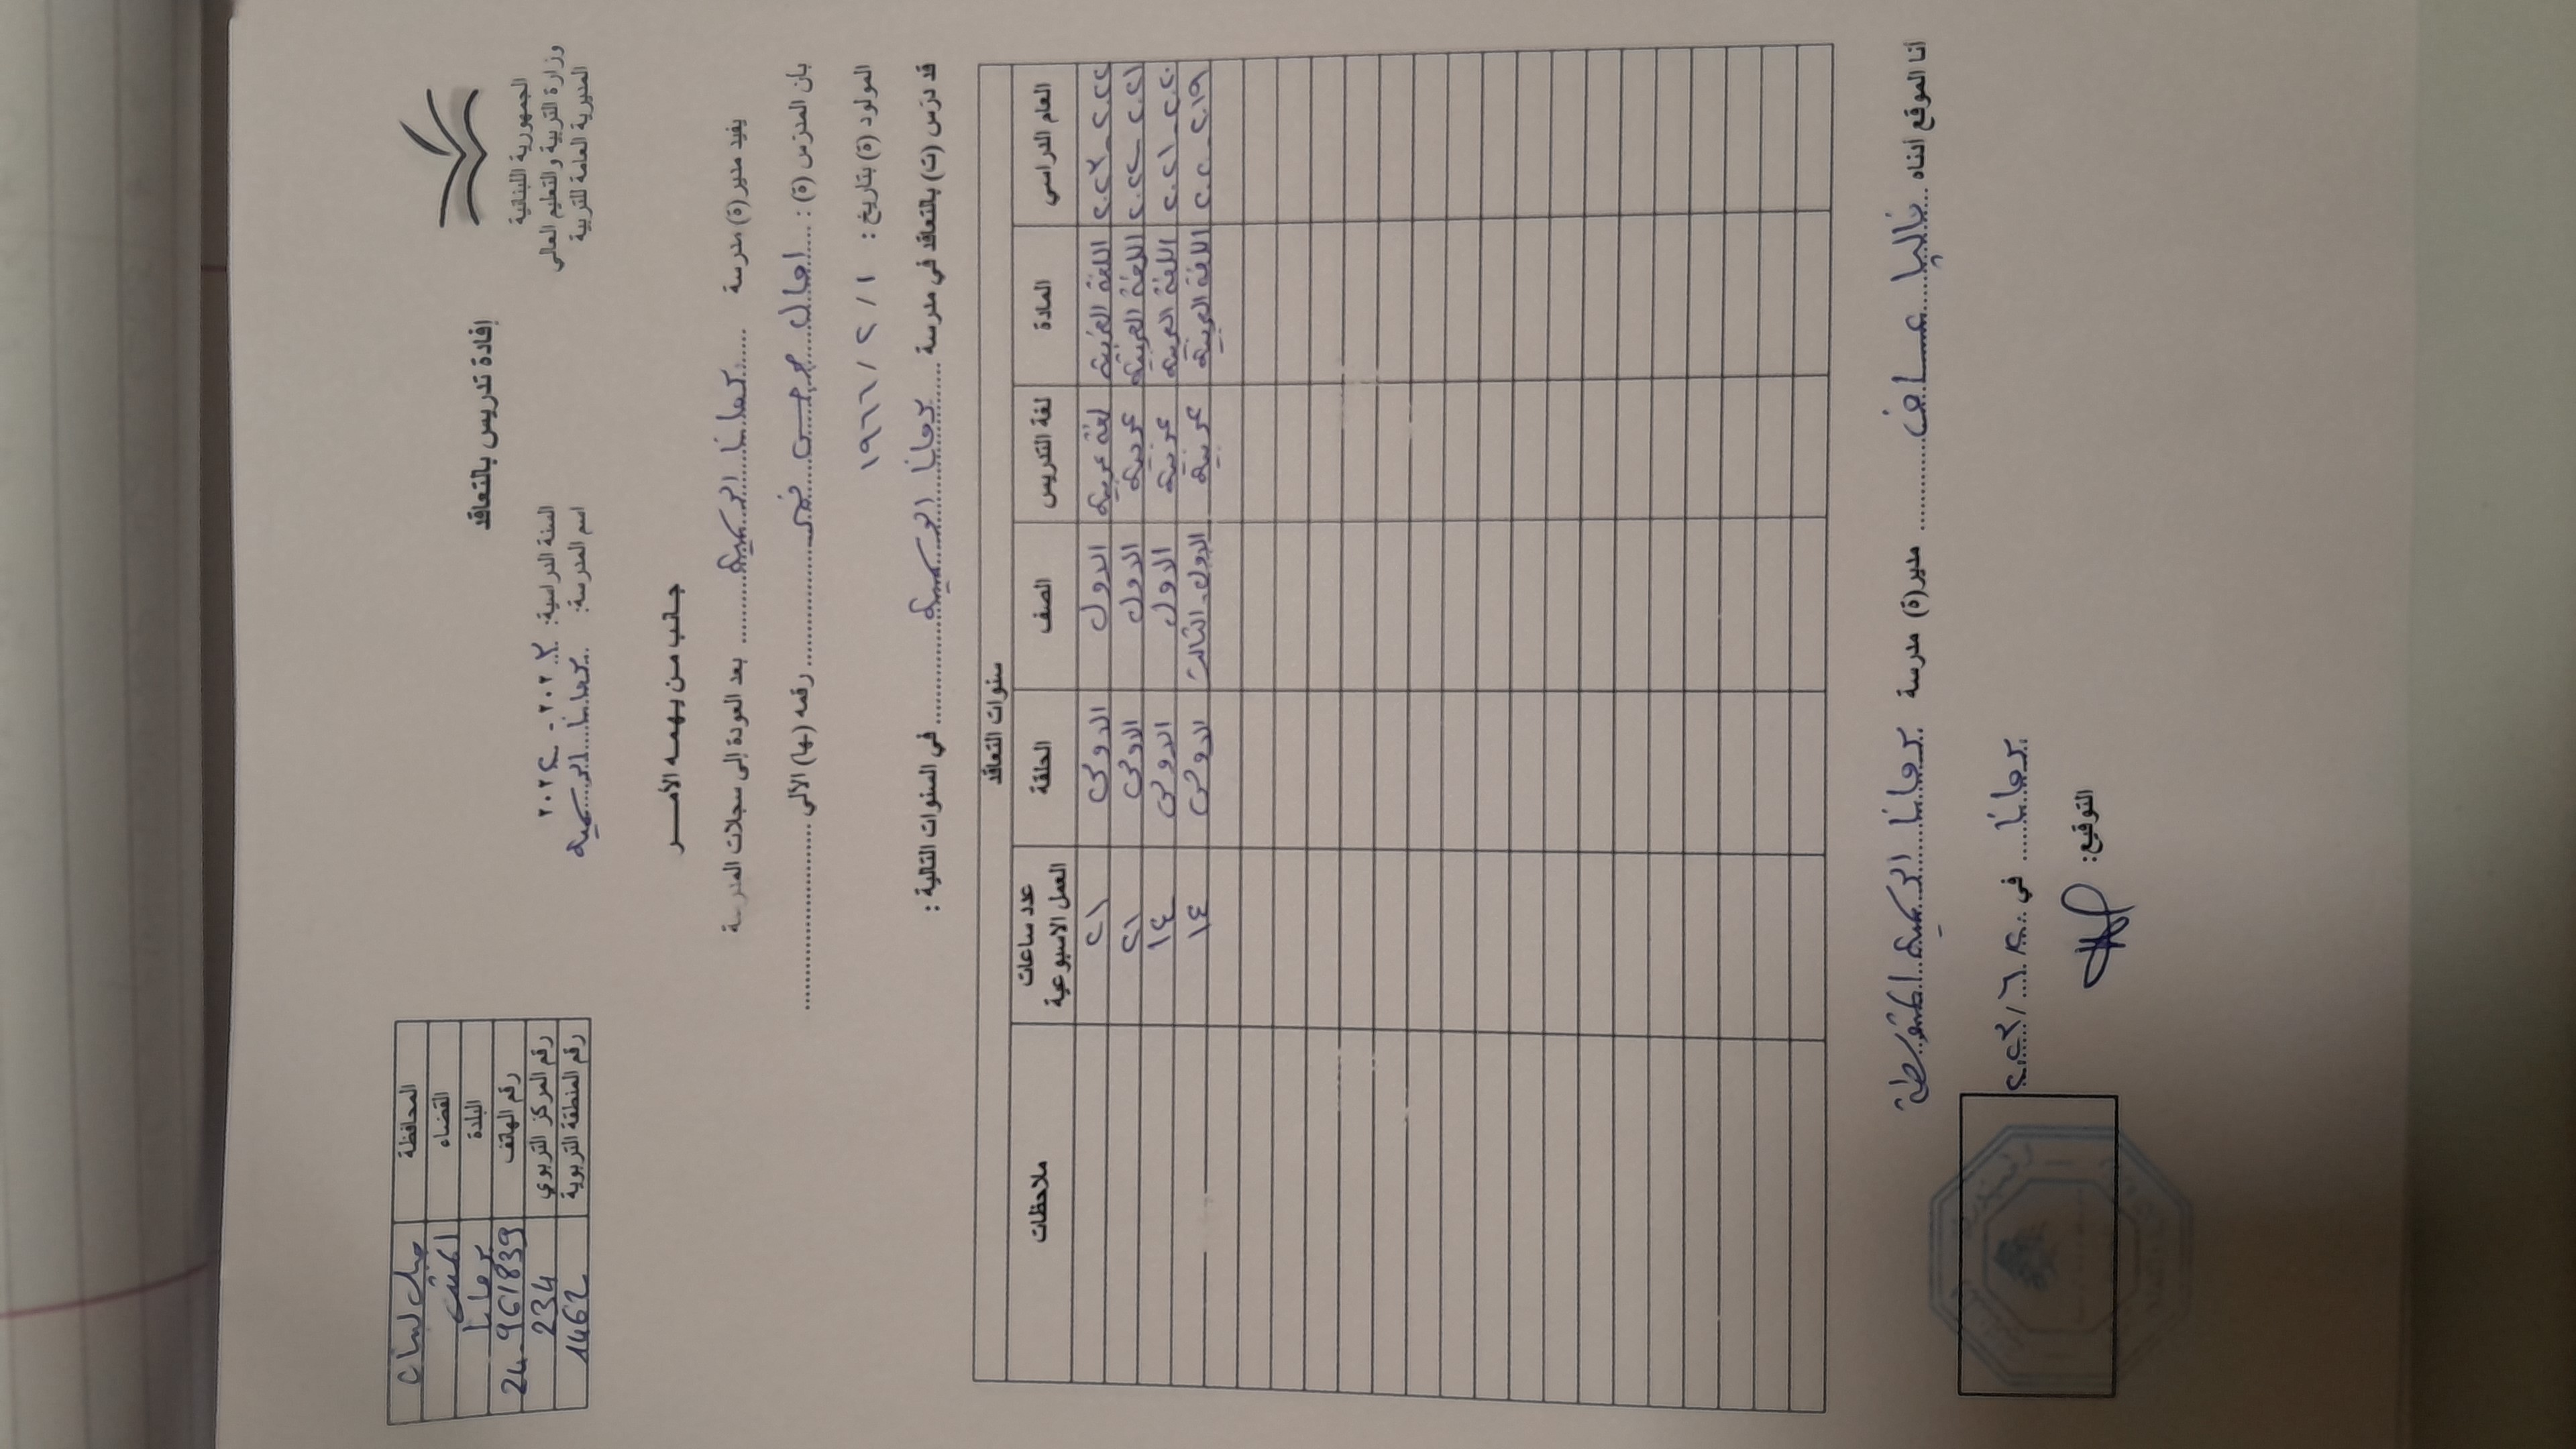 الجمهورية اللبنانية
وزارة التربية والتعليم العالي
المديرية العامة للتربية
المحافظة جبل لبنان
القضاء المتن
البلدة برمانا
رقم الهاتف 24-961839
رقم المركز التربوي 234
رقم المنطقة التربوية 1462
إفادة تدريس بالتعاقد
السنة الدراسية: ٢٠٢٣ - ٢٠٢٤
اسم المدرسة: برمانا الرسمية
جانب من يهمه الأمر
يفيد مدير(ة) مدرسة برمانا الرسمية بعد العودة إلى سجلات المدرسة
بان المدرّس (ة) : امال رقمه (ها) الآلي
المولود (ة) بتاريخ : ١ / ٢ / ١٩٦٦
قد درّس (ت) بالتعاقد في مدرسة برمانا الرسمية في السنوات التالية :
سنوات التعاقد
العام الدراسي المادة لغة التدريس الصف الحلقة عدد ساعات العمل الاسبوعية ملاحظات
٢٠٢٢ - ٢٠٢٣ اللغة العربية لغة عربية الاول الاولى ٢١
٢٠٢١ - ٢٠٢٢ اللغة العربية عربية الاول الاولى ٢١
٢٠٢٠ - ٢٠٢١ اللغة العربية عربية الاول الاولى ١٤
٢٠١٩ - ٢٠٢٠ اللغة العربية عربية الاول - الثالث الاولى ١٤
أنا الموقع أدناه داليا عساف مدير(ة) مدرسة برمانا الرسمية المتوسطة
برمانا في
التوقيع: